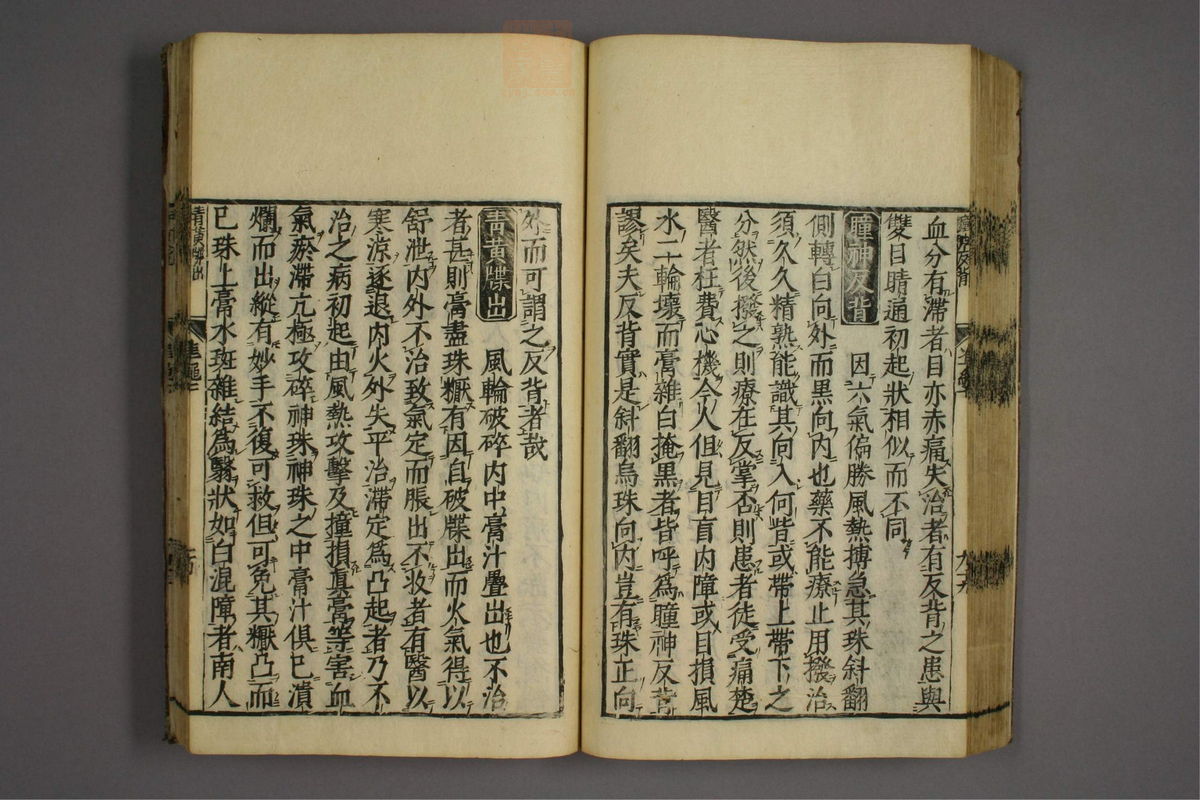 血分有滯者目亦赤痛失治者有反背之患與
雙目睛通初起狀相似而不同
瞳神反背　因六氣偏勝風熱搏急其珠斜翻
側轉白向外而黑向內也藥不能療止用撥治
須久久精熟能識其向入何眥或帶上帶下之
分然後撥之則療在反掌否則患者徒受痛楚
醫者枉費心機今人但見目盲內障或目損風
水二輪壞而膏雜白掩黑者皆呼爲瞳神反背
謬矣夫反背實是斜翻烏珠向內豈有珠正向
外而可謂之反背者哉
青黃牒出　風輪破碎內中膏汁疊出也不治
者甚則膏盡珠𤺥有因自破牒出而火氣得以
舒泄內外不治致氣定而脹出不收者有醫以
寒涼逐退內火外失平治滯定為凸起者乃不
治之病初起由風熱攻擊及撞損真膏等害血
氣瘀滯亢極攻碎神珠神珠之中膏汁俱已潰
爛而出縱有妙手不復可救但可免其𤺥凸而
已珠上膏水斑雜結爲翳狀如白混障者南人